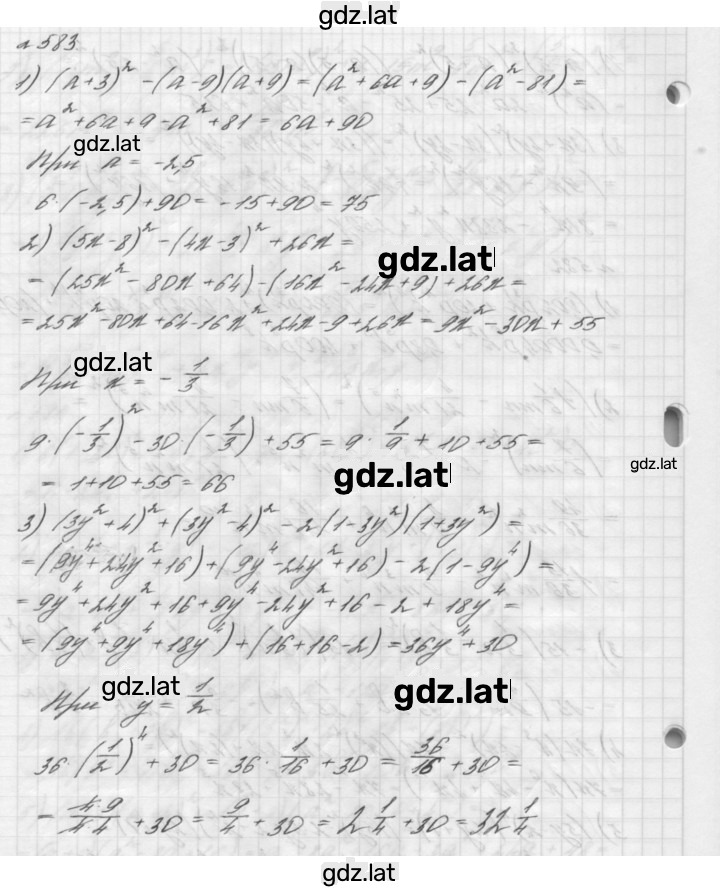 gdz.lat
№583
1) (a+3)² - (a-9)(a+9) = (a²+6a+9) - (a²-81) =
= a²+6a+9-a²+81 = 6a+90
gdz.lat
При a = -2,5
6·(-2,5)+90 = -15+90 = 75
2) (5x-8)² - (4x-3)² + 26x =
gdz.lat
= (25x² - 80x + 64) - (16x² - 24x + 9) + 26x =
= 25x²-80x+64-16x²+24x-9+26x = 9x² - 30x + 55
gdz.lat
При x = - 1/3
9·(-1/3)² - 30·(-1/3) + 55 = 9· 1/9 + 10 + 55 =
gdz.lat
gdz.lat
= 1+10+55 = 66
3) (3y²+4)² + (3y²-4)² - 2(1-3y²)(1+3y²) =
= (9y⁴+24y²+16) + (9y⁴-24y²+16) - 2(1-9y⁴) =
= 9y⁴+24y²+16+9y⁴-24y²+16-2+18y⁴ =
= (9y⁴+9y⁴+18y⁴)+(16+16-2) = 36y⁴+30
gdz.lat
gdz.lat
При y = 1/2
36·(1/2)⁴ + 30 = 36· 1/16 + 30 = 36/16 + 30 =
= 4·9/4·4 + 30 = 9/4 + 30 = 2 1/4 + 30 = 32 1/4
gdz.lat